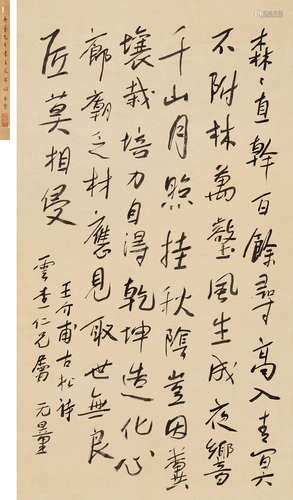 森々直幹百餘尋高入青冥
不附林萬壑風生成夜響
千山月照挂秋陰豈因糞
壤栽培力自得乾坤造化心
廊廟乏材應見取世無良
匠莫相侵
王介甫古松诗
雲書仁兄屬 元量